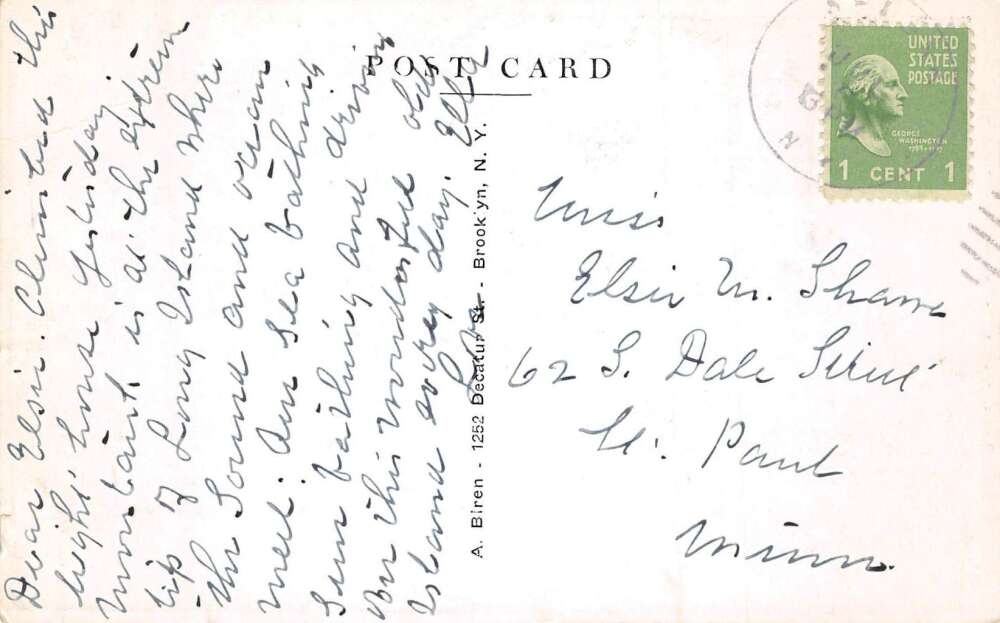 Dear Elsie. Climbed this
light house yesterday
Montauk is at the extrem
tip of Long Island where
the Sound and ocean
meet. Am sea bathing
sun bathing and driving
on this wonderful old
Island every day.
Love Ella
POST CARD
A. Biren - 1252 Decatur St. - Brooklyn, N. Y.
UNITED
STATES
POSTAGE
GEORGE
WASHINGTON
1789-1797
1 CENT 1
Miss
Elsie M. Shawe
62 S. Dale Street
St. Paul
Minn.